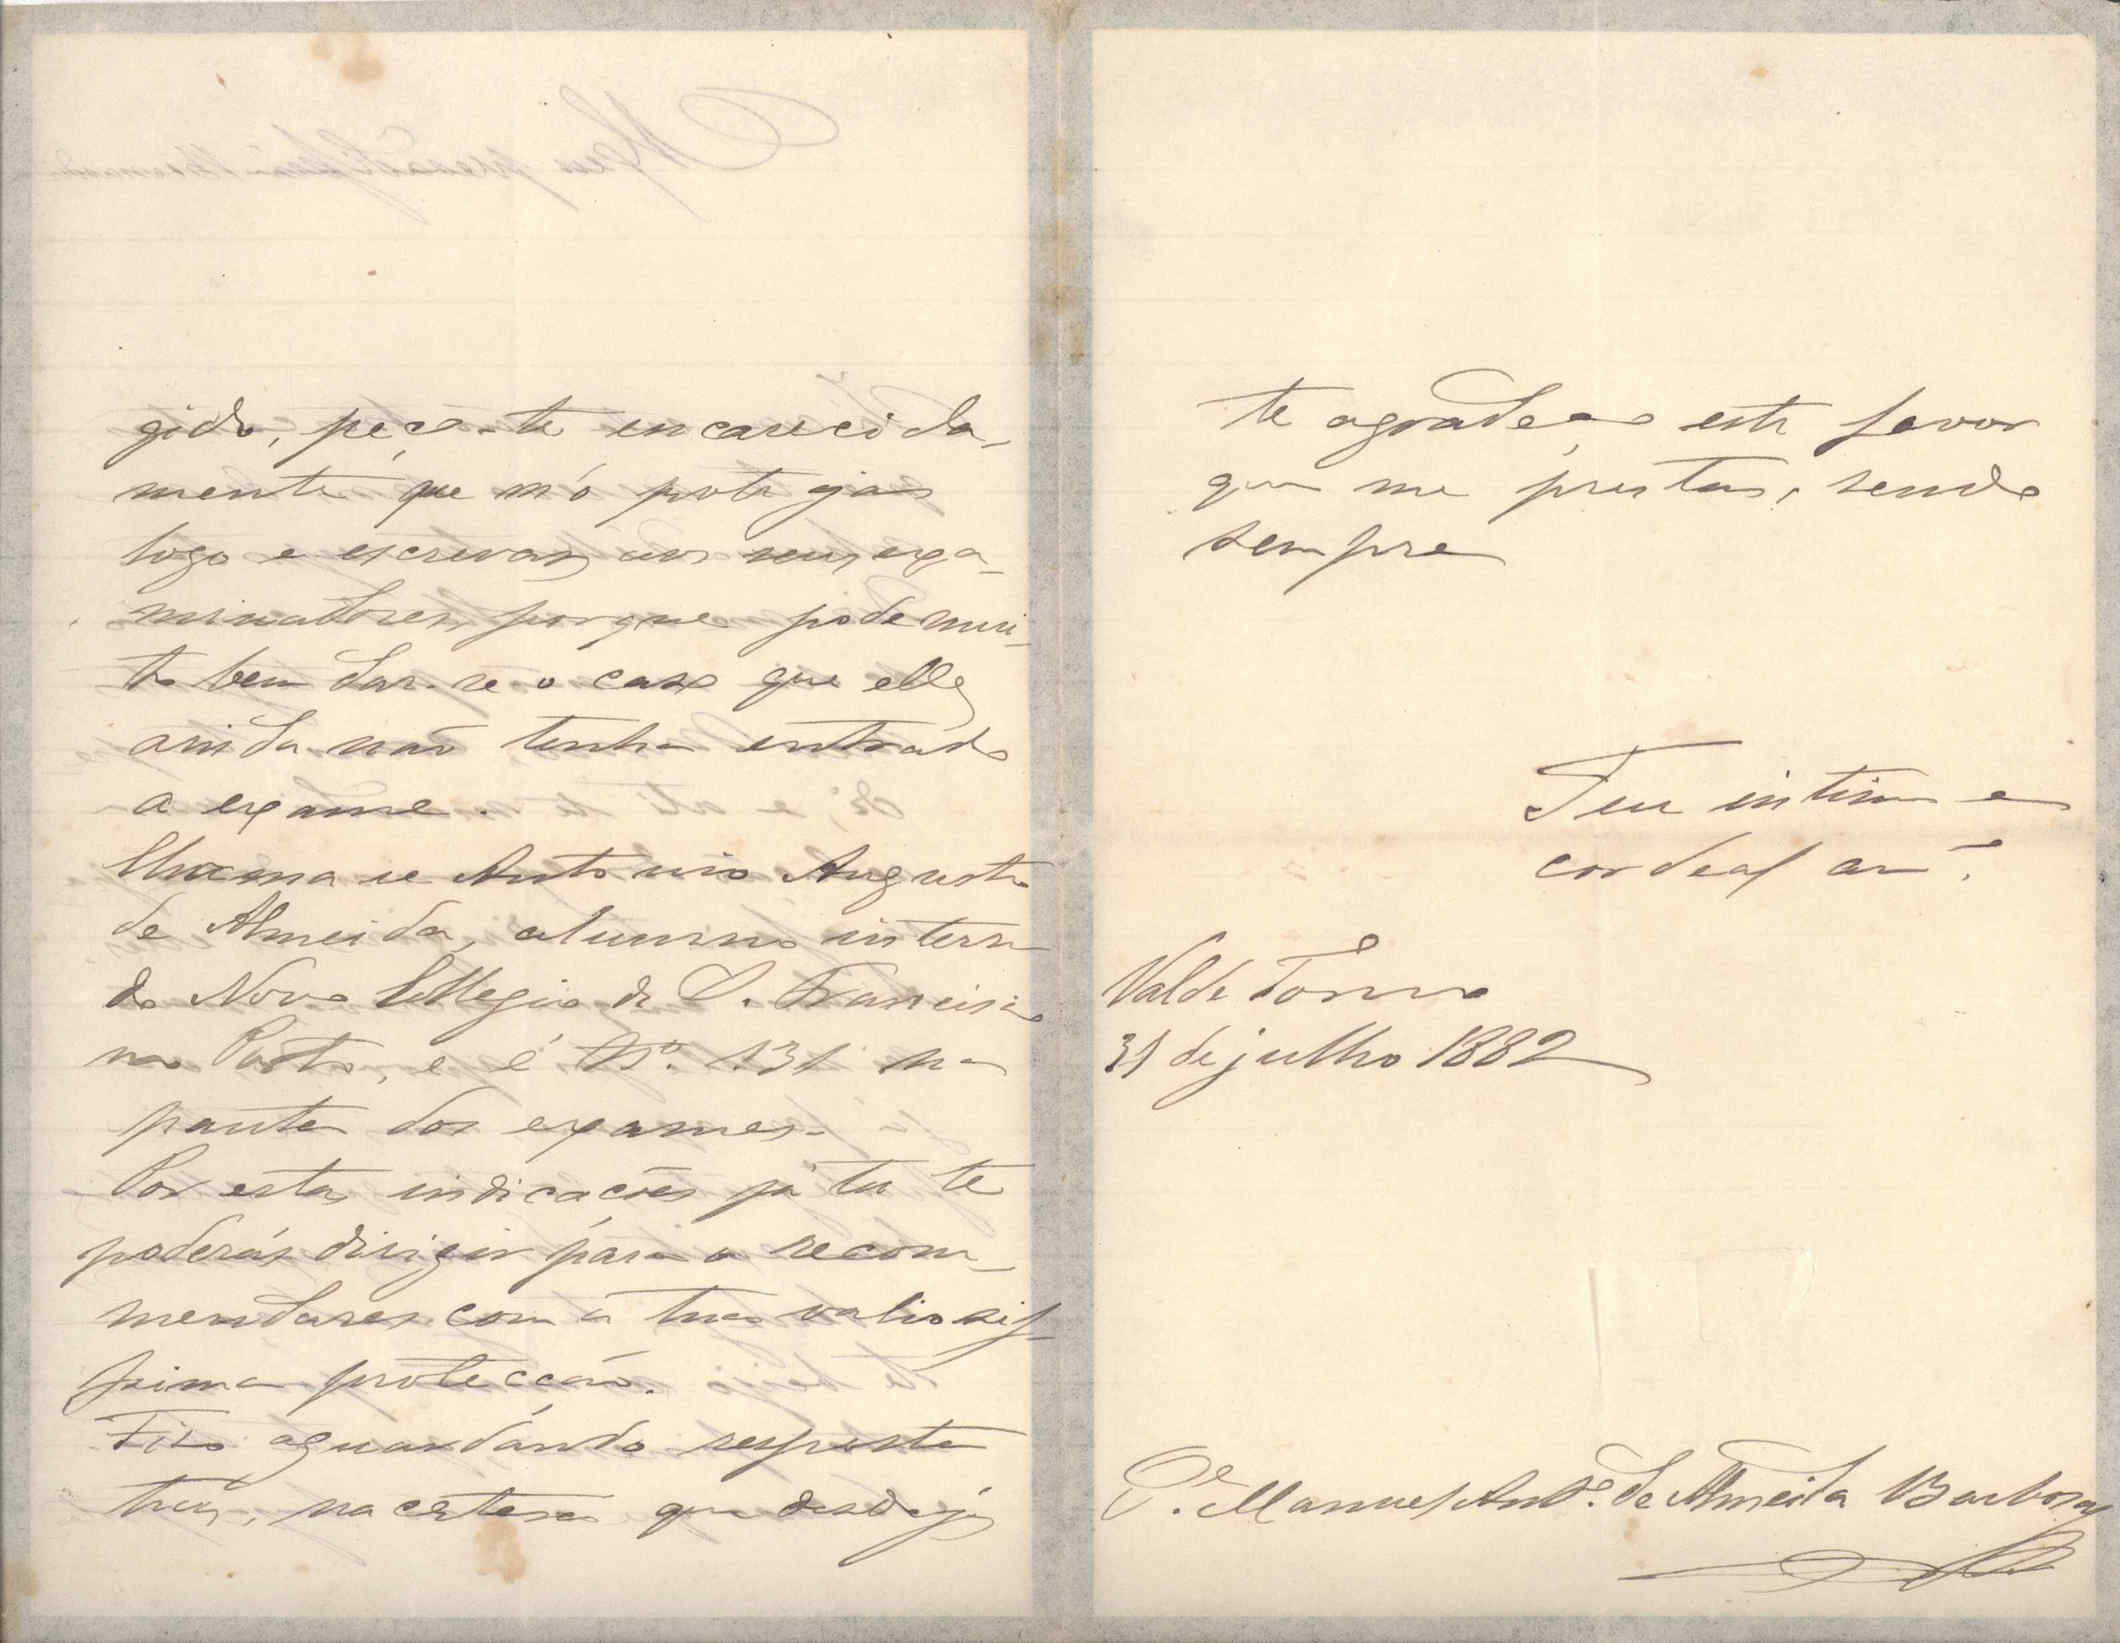 gido, peço-te encarecida-
mente que m'o protejas
logo e escrevas aos seus exa-
minadores, porque pode mui-
to bem dar-se o caso que elle
ainda não tenha entrado
a exame.
Chama se Antonio Augusto
de Almeida, alumno interno
do Novo Collegio de S. Francisco
no Porto, e é Nº. 131 na
pauta dos exames.
Por estas indicações já tu te
poderás dirigir para o recom-
mendares com a tua valiosis-
sima protecção.
Fico aguardando resposta
tua, na certesa que desde já
te agradeço este favor
que me prestas, sendo
sempre
Teu intimo e
cordeal amº.
Val de Torno
31 de julho 1882
Pe. Manuel Antº. de Almeida Barbosa